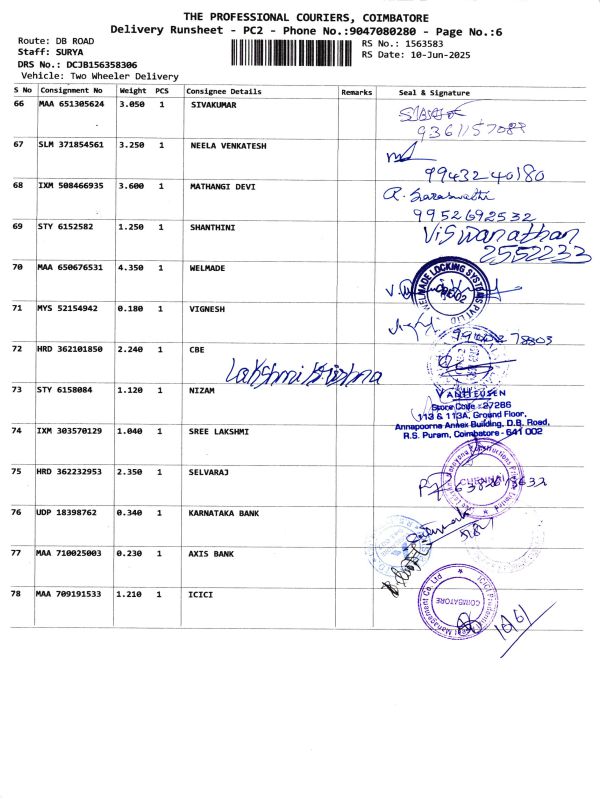 THE PROFESSIONAL COURIERS, COIMBATORE
Delivery Runsheet - PC2 - Phone No.:9047080280 - Page No.:6
Route: DB ROAD
RS No.: 1563583
Staff: SURYA
RS Date: 10-Jun-2025
DRS No.: DCJB156358306
Vehicle: Two Wheeler Delivery
S No Consignment No Weight PCS Consignee Details Remarks Seal & Signature
66 MAA 651305624 3.050 1 SIVAKUMAR
67 SLM 371854561 3.250 1 NEELA VENKATESH
9943240180
68 IXM 508466935 3.600 1 MATHANGI DEVI
R. Saraswathi
9952692532
69 STY 6152582 1.250 1 SHANTHINI
Viswanathan
2552233
70 MAA 650676531 4.350 1 WELMADE
WELMADE LOCKING SYSTEMS PVT LTD
71 MYS 52154942 0.180 1 VIGNESH
72 HRD 362101850 2.240 1 CBE
Lakshmi Krishna
73 STY 6158084 1.120 1 NIZAM
VAN HEUSEN
Store Code : 27286
113 & 113A, Ground Floor,
Annapoorna Annex Building, D.B. Road,
R.S. Puram, Coimbatore - 641 002
74 IXM 303570129 1.040 1 SREE LAKSHMI
75 HRD 362232953 2.350 1 SELVARAJ
CHENNAI
76 UDP 18398762 0.340 1 KARNATAKA BANK
77 MAA 710025003 0.230 1 AXIS BANK
78 MAA 709191533 1.210 1 ICICI
COIMBATORE
10/6/